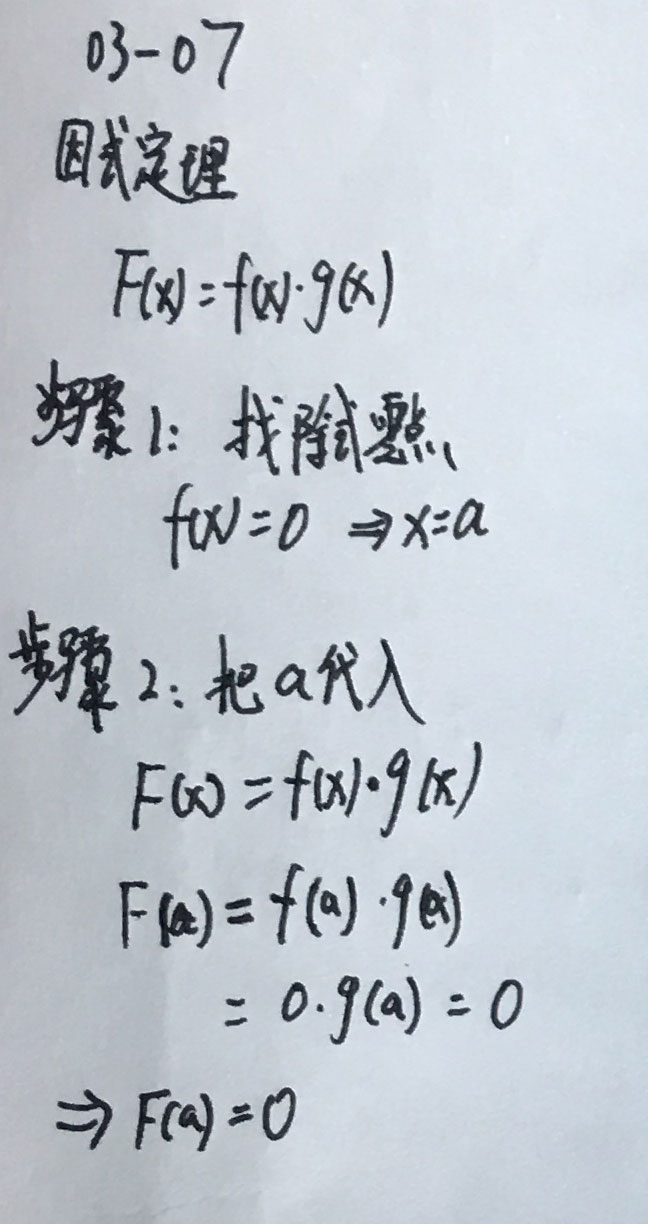 03-07
因式定理
F(x)=f(x)·g(x)
步骤1: 找除式零点
f(x)=0 ⇒x=a
步骤2: 把a代入
F(x)=f(x)·g(x)
F(a)=f(a)·g(a)
=0·g(a)=0
⇒F(a)=0